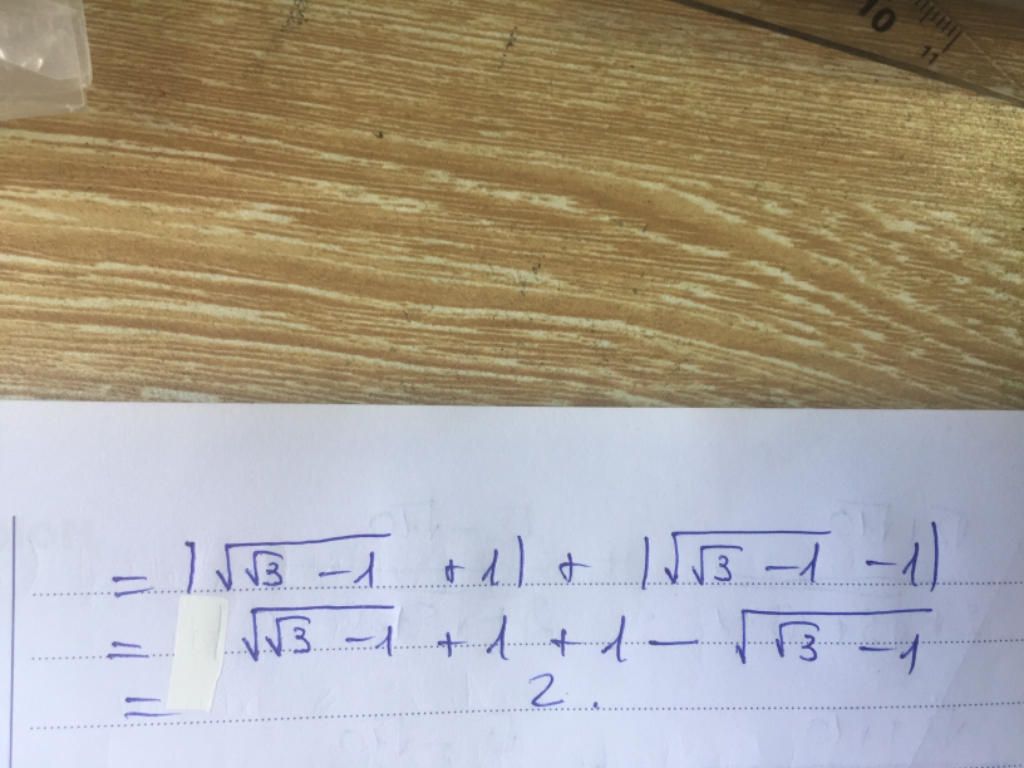 10
11
= |√(√3 - 1) + 1| + |√(√3 - 1) - 1|
= √(√3 - 1) + 1 + 1 - √(√3 - 1)
= 2.